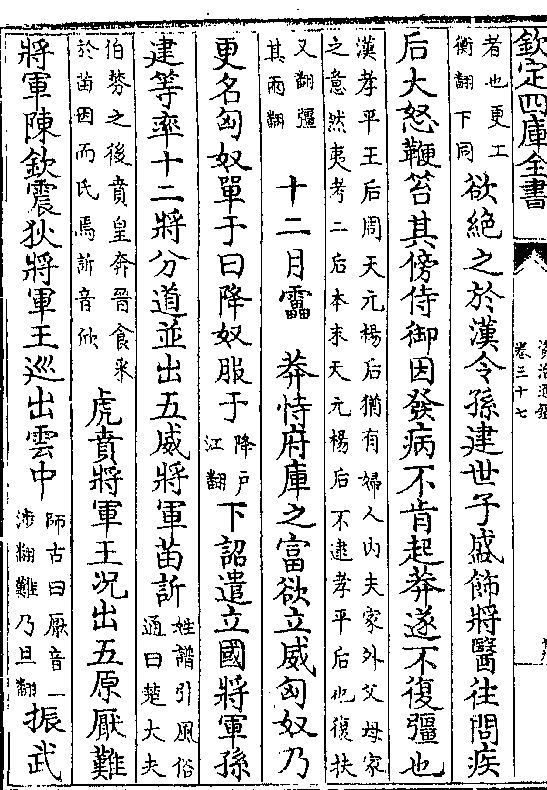 欽定四庫全書
資治通鑑
卷三十七
者也更工
衡翻下同
欲絶之於漢令孫建世子盛飾將醫往問疾
后大怒鞭笞其傍侍御因發病不肯起莽遂不復彊也
漢孝平王后周天元楊后猶有婦人内夫家外父母家
之意然夷考二后本末天元楊后不逮孝平后也復扶
又翻彊
其兩翻
十二月靁 莽恃府庫之富欲立威匈奴乃
更名匈奴單于曰降奴服于
降户
江翻
下詔遣立國將軍孫
建等率十二將分道並出五威將軍苗訢
姓譜引風俗
通曰楚大夫
伯棼之後賁皇奔晉食采
於苗因而氏焉訢音欣
虎賁將軍王况出五原厭難
將軍陳欽震狄將軍王巡出雲中
師古曰厭音一
涉翻難乃旦翻
振武